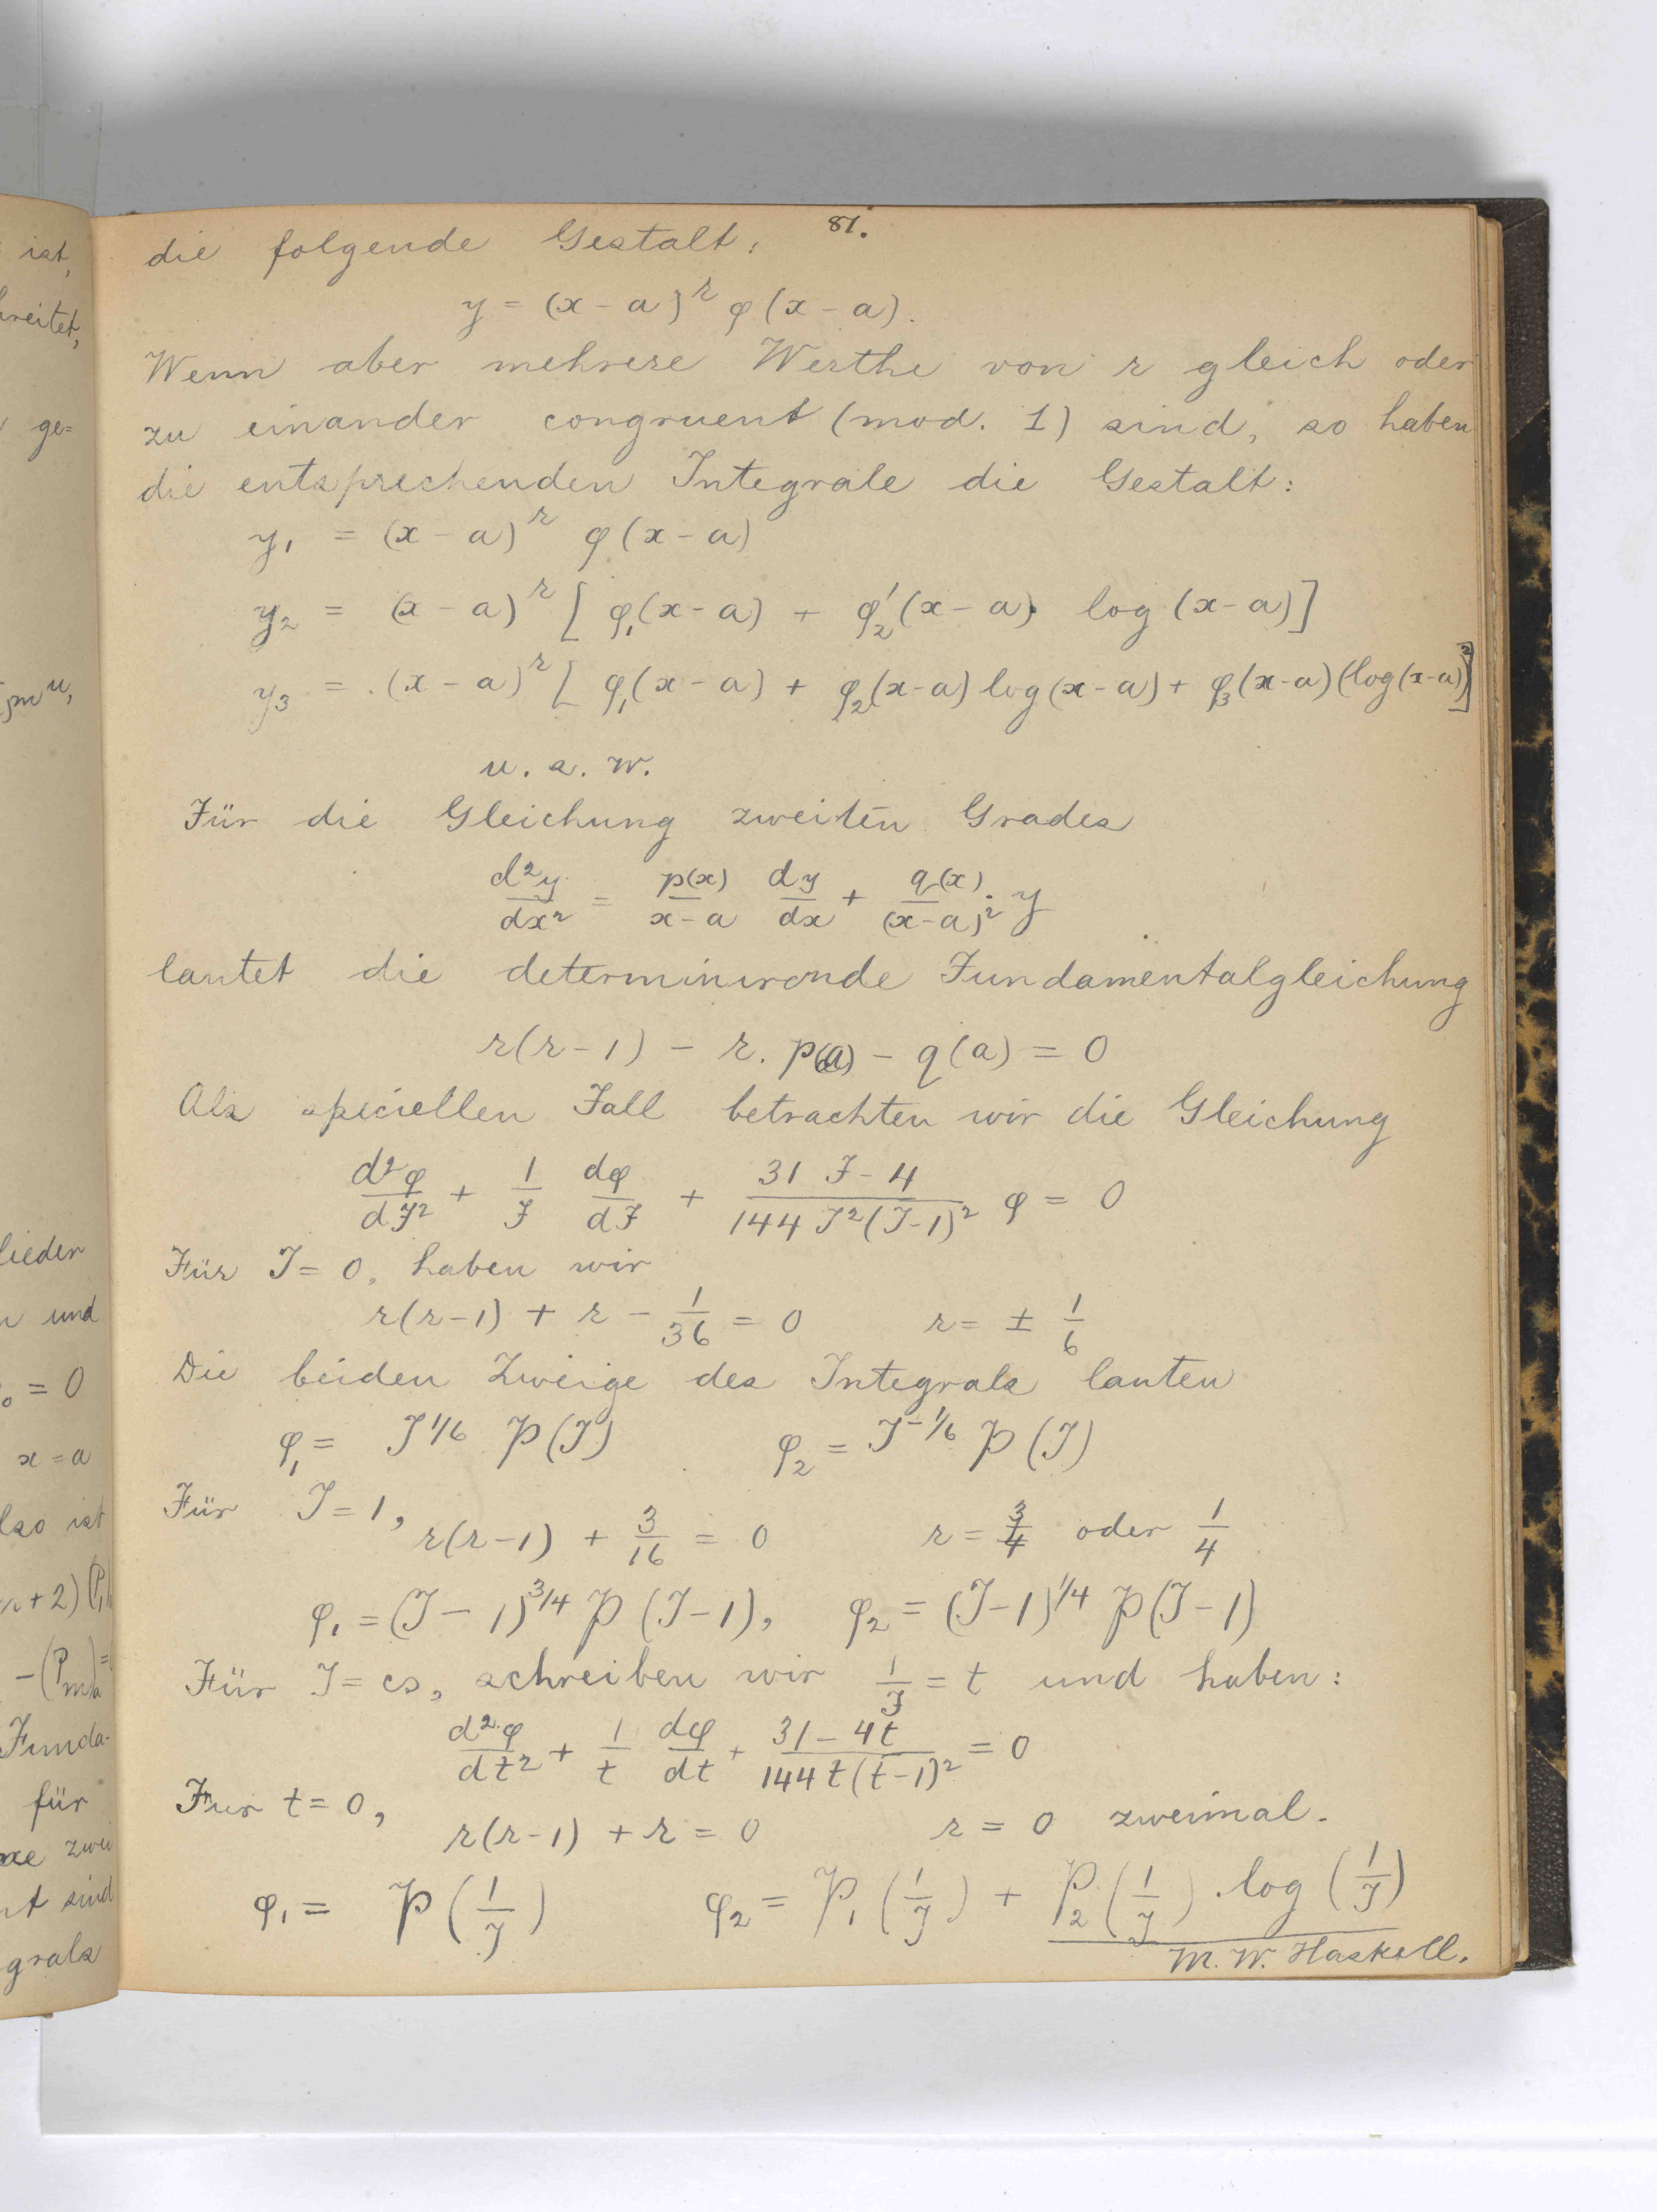 81.
die folgende Gestalt:
y = (x - a)^r φ(x - a).
Wenn aber mehrere Werthe von r gleich oder
zu einander congruent (mod. 1) sind, so haben
die entsprechenden Integrale die Gestalt:
y₁ = (x - a)^r φ(x - a)
y₂ = (x - a)^r [φ₁(x - a) + φ₂'(x - a) · log (x - a)]
y₃ = (x - a)^r [φ₁(x - a) + φ₂(x-a) log(x-a) + φ₃(x-a)(log(x-a))²]
u. s. w.
Für die Gleichung zweiten Grades
d²y/dx² = p(x)/(x - a) dy/dx + q(x)/(x - a)² · y
lautet die determinirende Fundamentalgleichung
r(r - 1) - r. p(a) - q(a) = 0
Als speciellen Fall betrachten wir die Gleichung
d²φ/dJ² + 1/J dφ/dJ + (31 J - 4)/(144 J²(J-1)²) φ = 0
Für J = 0, haben wir
r(r-1) + r - 1/36 = 0 r = ± 1/6
Die beiden Zweige des Integrals lauten
φ₁ = J^1/6 P(J) φ₂ = J^-1/6 P(J)
Für J = 1, r(r-1) + 3/16 = 0 r = 3/4 oder 1/4
φ₁ = (J - 1)^3/4 P(J-1), φ₂ = (J-1)^1/4 P(J-1)
Für J = ∞, schreiben wir 1/J = t und haben:
d²φ/dt² + 1/t dφ/dt + (31 - 4t)/(144 t(t-1)²) = 0
Fur t = 0, r(r-1) + r = 0 r = 0 zweimal.
φ₁ = P(1/J) φ₂ = P₁(1/J) + P₂(1/J) . log (1/J)
M. W. Haskell.
ist,
ge=
lieder
und
= 0
x = a
ist
Funda-
für
zwei
sind